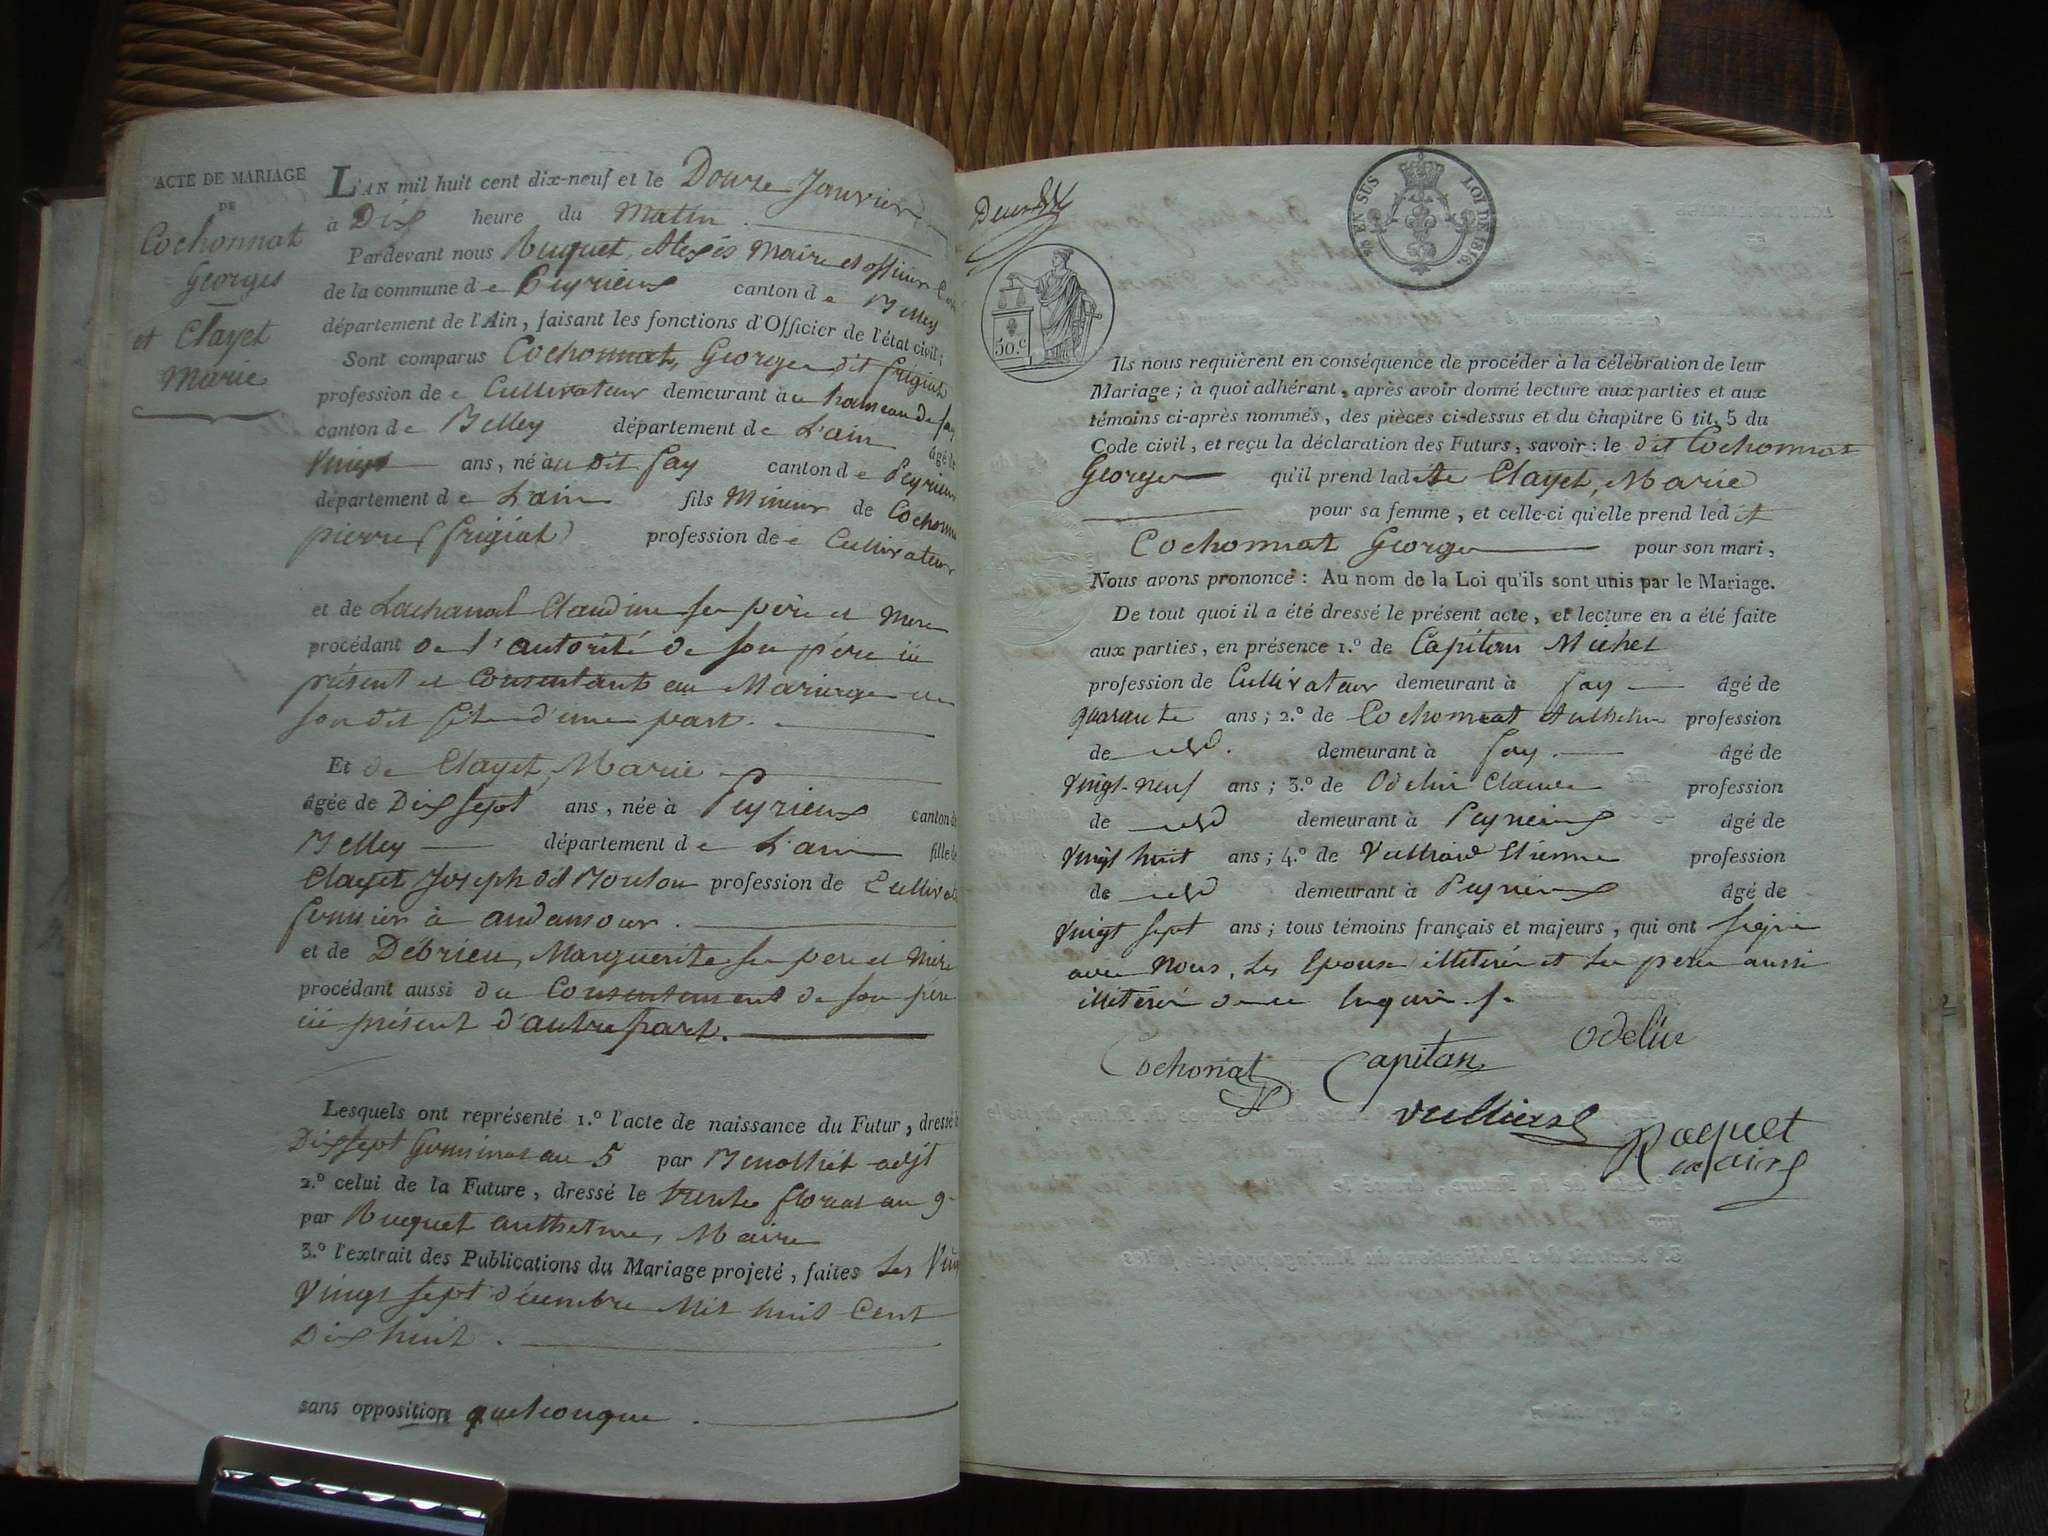 ACTE DE MARIAGE
DE
Cochonnat
Georges
et Clayet
Marie
L'AN mil huit cent dix-neuf et le Douze Janvier
à Dix heure du Matin
Pardevant nous Ruquet, Alexis Maire et officier
de la commune de Peyrieux canton de Belley
département de l'Ain, faisant les fonctions d'Officier de l'état civil;
Sont comparus Cochonnat, George dit frigiat
profession de Cultivateur demeurant à hameau de fay
canton de Belley département de L'ain âgé de
Vingt ans, né au Dit fay canton de Peyrieux
département de L'ain fils Mineur de Cochonna
pierre (frigiat) profession de Cultivateur
et de Lachanal Claudine ses père et Mère
procédant de l'autorité de son père ici
présent et Consentant au Mariage de
son dit fils d'une part.
Et de Clayet, Marie
âgée de Dix sept ans, née à Peyrieux canton de
Belley département de L'ain fille de
Clayet Joseph dit Moulon profession de Cultivat
fermier à andamour.
et de Débrieu, Marguerite ses père et Mère
procédant aussi du Consentement de son père
ici présent d'autre part.
Lesquels ont représenté 1.º l'acte de naissance du Futur, dressé
Dix sept Germinal an 5 par adjt
2.º celui de la Future, dressé le trente floreal an 9
par Ruquet anthelme, Maire
3.º l'extrait des Publications du Mariage projeté, faites Les Vin
Vingt sept décembre Mil huit Cent
Dix huit.
sans opposition quelconque.
Deux
50.c
EN SUS
LOI DE 1816.
Ils nous requièrent en conséquence de procéder à la célébration de leur
Mariage; à quoi adhérant, après avoir donné lecture aux parties et aux
témoins ci-après nommés, des pièces ci-dessus et du chapitre 6 tit. 5 du
Code civil, et reçu la déclaration des Futurs, savoir: le dit Cochonnat
George qu'il prend ladite Clayet, Marie
pour sa femme, et celle-ci qu'elle prend ledit
Cochonnat George pour son mari,
Nous avons prononcé: Au nom de la Loi qu'ils sont unis par le Mariage.
De tout quoi il a été dressé le présent acte, et lecture en a été faite
aux parties, en présence 1.º de Capitan Michel
profession de Cultivateur demeurant à fay âgé de
quarante ans; 2.º de Cochonnat Anthelme profession
de demeurant à fay. âgé de
Vingt-neuf ans; 3.º de Odelin Claude profession
de demeurant à Peyrieux âgé de
Vingt huit ans; 4.º de Vulliard Etienne profession
de demeurant à Peyrieux âgé de
Vingt sept ans; tous témoins français et majeurs, qui ont signé
avec Nous, Les Epoux illitérés et Les père aussi
illitérés de ce requis
Cochonat Capitan Odelin
Vulliard Ruquet
maire